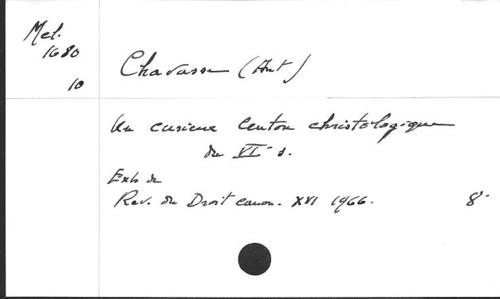 Mel.
1680
10
Chavasse (Ant)
Un curieux Centon christologique
du VIe s.
Extr. de
Rev. de Droit canon. XVI 1966.
8°